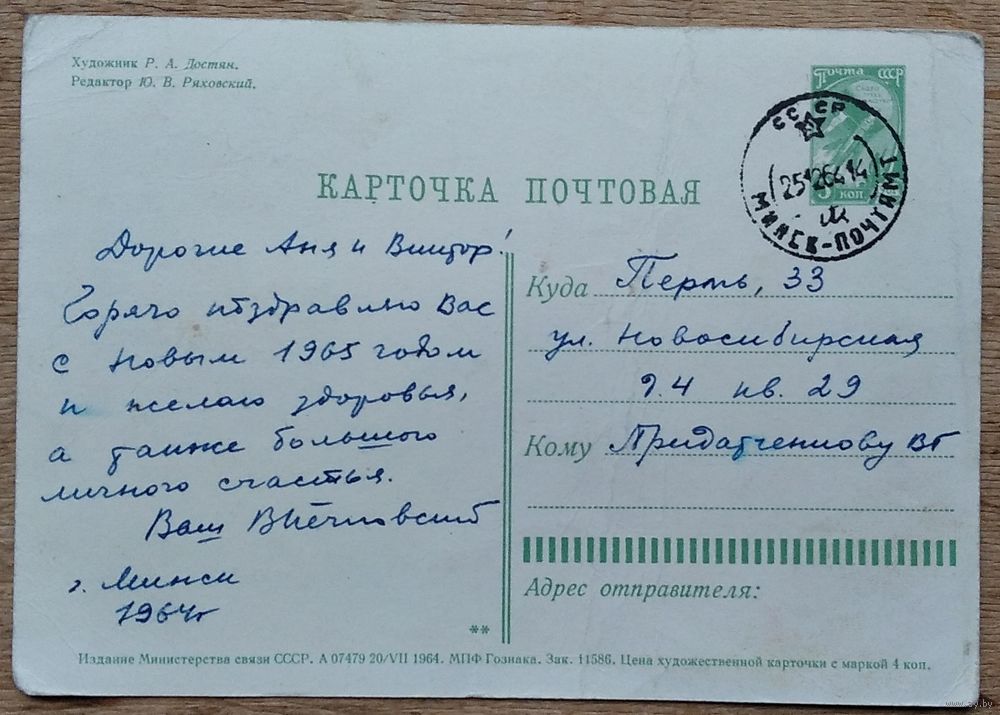 Художник Р. А. Достян.
Редактор Ю. В. Ряховский.
Почта СССР
3 коп.
СССР
25 12 64 14
МИНСК-ПОЧТАМТ
КАРТОЧКА ПОЧТОВАЯ
Дорогие Аня и Виктор!
Горячо поздравляю Вас
с Новым 1965 годом
и желаю здоровья,
а также большого
личного счастья.
Ваш
г. Минск
1964г
**
Куда Пермь, 33
ул. Новосибирская
д. 4 кв. 29
Кому Придатченкову ВГ
Адрес отправителя:
Издание Министерства связи СССР. А 07479 20/VII 1964. МПФ Гознака. Зак. 11586. Цена художественной карточки с маркой 4 коп.
www.ay.by